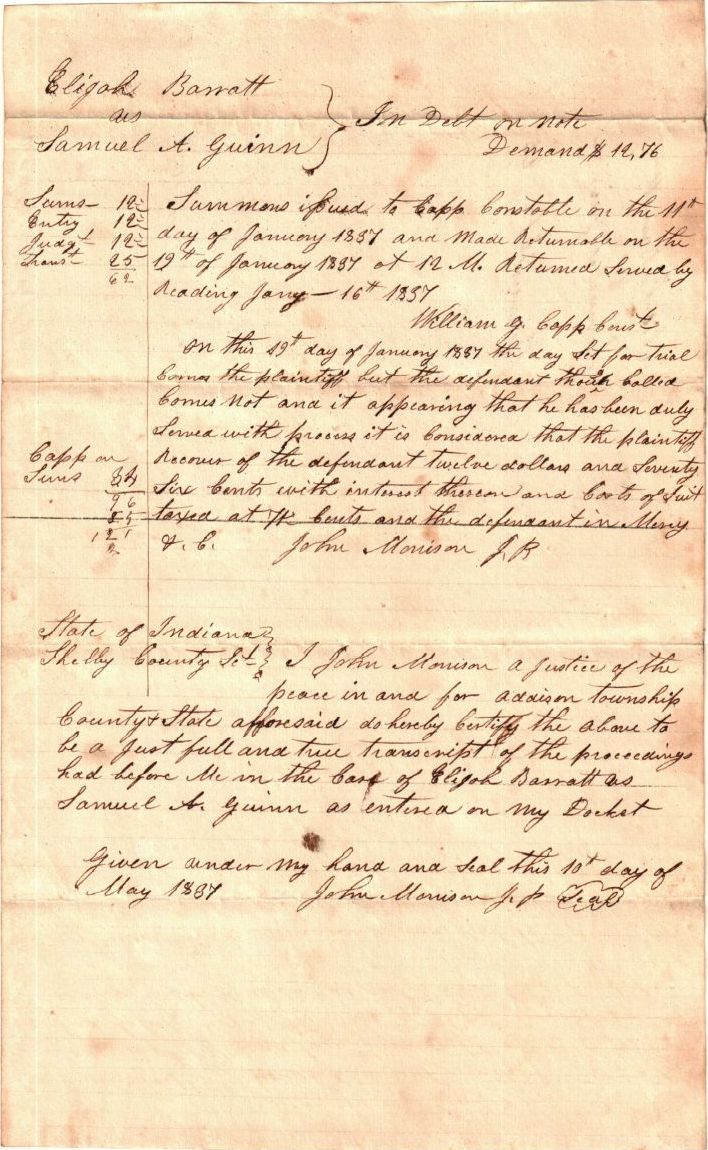 Elijah Barratt
vs
Samuel A. Guinn
In Debt on note
Demand $ 12,76
Sums— 12½
Entry 12½
Judgt 12½
Transt 25
62
Summons issued to Capp Constable on the 11th
day of January 1837 and Made Returnable on the
19th of January 1837 at 12 M. Returned Served by
Reading Jany— 16th 1837
William G. Capp Const
on this 19th day of January 1837 the day Set for trial
Comes the plaintiff but the defendant though Called
Comes Not and it appearing that he has been duly
Served with process it is Considered that the plaintiff
Recover of the defendant twelve dollars and Seventy
Six Cents with interest thereon and Costs of Suit
taxed at Cents and the defendant in Mercy
&. C. John Morrison J, P
Capp on
Sums 34
96
25
1 2 1
2
State of Indiana
Shelby County Sct
I John Morrison a Justice of the
peace in and for addison township
County & State afforesaid do hereby Certify the above to
be a Just full and true transcript of the proceedings
had before Me in the Case of Elijah Barratt vs
Samuel A. Guinn as entered on My Docket
Given under My hand and Seal this 10th day of
May 1837 John Morrison J. P Seal